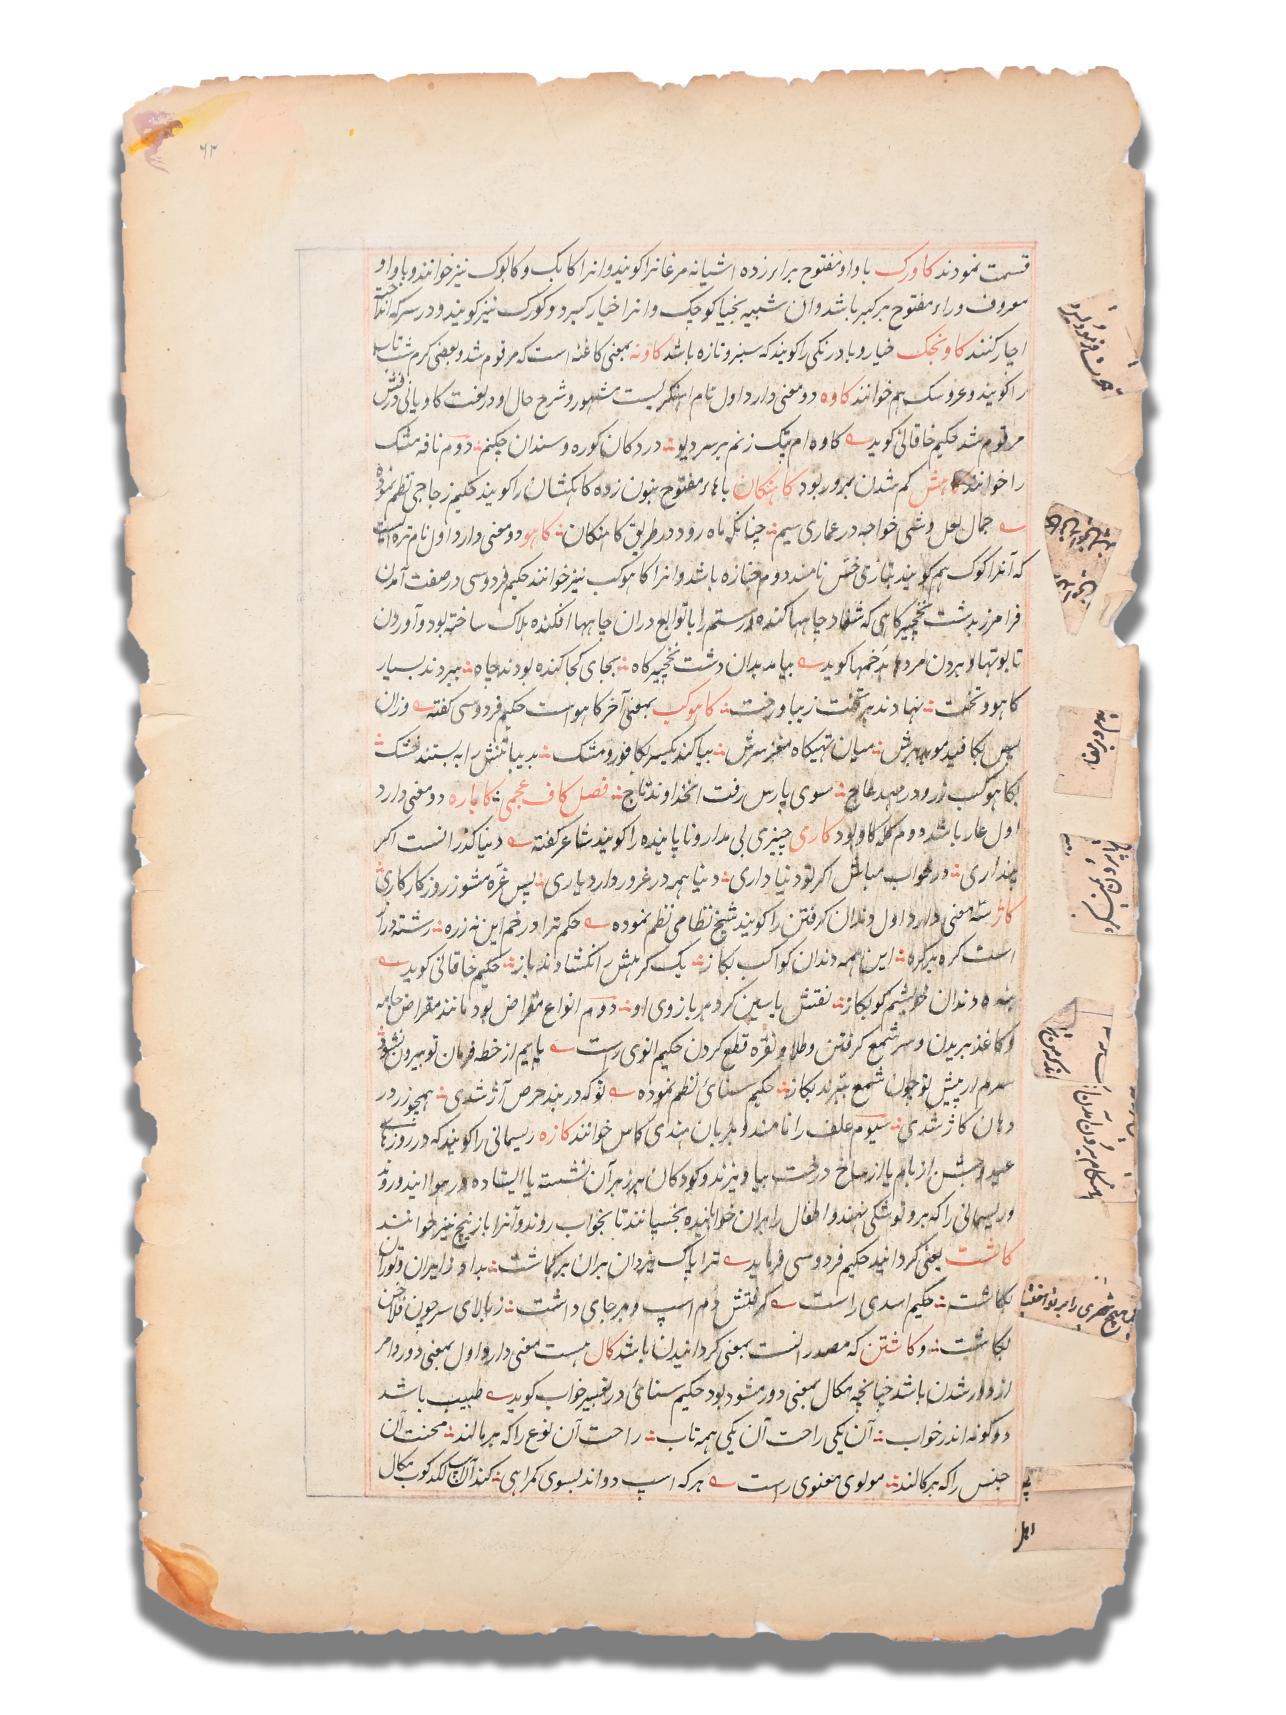 ۶۲
قسمت نمودند کاورک با واو مفتوح براء زده اشیانه مرغانرا کویند و انرا کابک و کابوک نیز خوانند و با واو
معروف و راء مفتوح هر کبر باشد و ان شبیه بخیار کوچک و انرا خیار کبر و کورک نیز کویند و در سرکه انداخته
اچار کنند کاونجک خیار و بادرنکی را کویند که سبز و تازه باشد کاونه بمعنی کاغنه است که مرقوم شد و بعضی کرم شب تاب
را کویند و عروسک هم خوانند کاوه دو معنی دارد اول نام اهنکریست مشهور و شرح حال او در لغت کاویانی درفش
مرقوم شد حکیم خاقانی کوید کاوه ام پتک زنم بر سر دیو در دکان کوره و سندان چکنم دوم نافه مشک
را خوانند کاهش کم شدن بمرور بود کاهنکان با هاء مفتوح بنون زده کاهکشان را کویند حکیم زجاجی نظم نموده
جمال لعل وشی خواجه در عماری سیم چنانکه ماه رود در طریق کاهنکان کاهو دو معنی دارد اول نام تره ایست
که آنرا کوک هم کویند بتازی خس نامند دوم جنازه باشد و انرا کاهوکب نیز خوانند حکیم فردوسی در صفت آمدن
فرامرز بدشت نخچیرکاهی که شغاد چاهها کنده و رستم را با توابع دران چاهها افکنده هلاک ساخته بود و آوردن
تابوتها و بردن مردها بدخمها کوید بیامد بدان دشت نخچیرکاه بجای کجا کنده بودند چاه ببردند بسیار
کاهو و تخت نهادند بر تخت زیبا درخت کاهوکب بمعنی آخر کاهو است حکیم فردوسی کفته وزان
پس بکافید موبد برش میان تهیکاه مغز سرش بیاکند یکسر بکافور و مشک بدیبا تنش را به بستند خشک
بکاهوکب زر و در مهد عاج سوی پارس رفت انخداوند تاج فصل کاف عجمی کاباره دو معنی دارد
اول غار باشد دوم کله کاو بود کاری چیزی بی مدار و ناپاینده را کویند شاعر کفته دنیا کذرانست اکر
پنداری در خواب مباش اکر تو دنیا داری دنیا همه در غرور دارد یاری پس غره مشو ز روزکار کاری
کاز سه معنی دارد اول دندان کرفتن را کویند شیخ نظامی نظم نموده حکم ترا در خم این نه زره رشته دراز
است کره بر کره این همه دندان کواکب بکاز یک کرهش را نکشادند باز حکیم خاقانی کوید
بنده دندان خویشم کو بکاز نقش یاسین کرد بر بازوی او دوم انواع مقراض بود مانند مقراض جامه
و کاغذ بریدن و سر شمع کرفتن و طلا و نقره قطع کردن حکیم انوری راست پایم از خطه فرمان تو بیرون نشود
سرم ار پیش تو چون شمع ببرند بکاز حکیم سنائی نظم نموده تو که در بند حرص آز شدی همچو زر در
دهان کاز شدی سیوم علف را نامند و بزبان هندی کاس خوانند کازه ریسمانی را کویند که در روزهای
عید و جشن از بام یا از شاخ درخت بیاویزند و کودکان بر زبر آن نشسته یا ایستاده در هوا ایند و روند
و ریسمانی را که برو توشکی نهند و اطفال را بران خوابانیده بجنبانند تا بخواب روند و آنرا بازنیج نیز خوانند
کاشت یعنی کردانید حکیم فردوسی فرماید ترا پاک یزدان بران برکماشت بد او ز ایران و توران
بکاشت حکیم اسدی راست کرفتش دم اسپ و بر جای داشت ز بالای سر چون فلاخن
بکاشت و کاشتن که مصدر انست بمعنی کردانیدن باشد کال بیست معنی دارد اول بمعنی دور و امر
از دور شدن باشد چنانچه بکال بمعنی دور شود بود حکیم سنائی در تعبیر خواب کوید طبیب باشد
دو کونه اندر خواب آن یکی راحت آن یکی همه تاب راحت آن نوع را که بر بالند محنت آن
جنس را که بر کالند مولوی معنوی راست هر که اسپ دواند بسوی کمراهی کند آن اسپ لکدکوب بکال